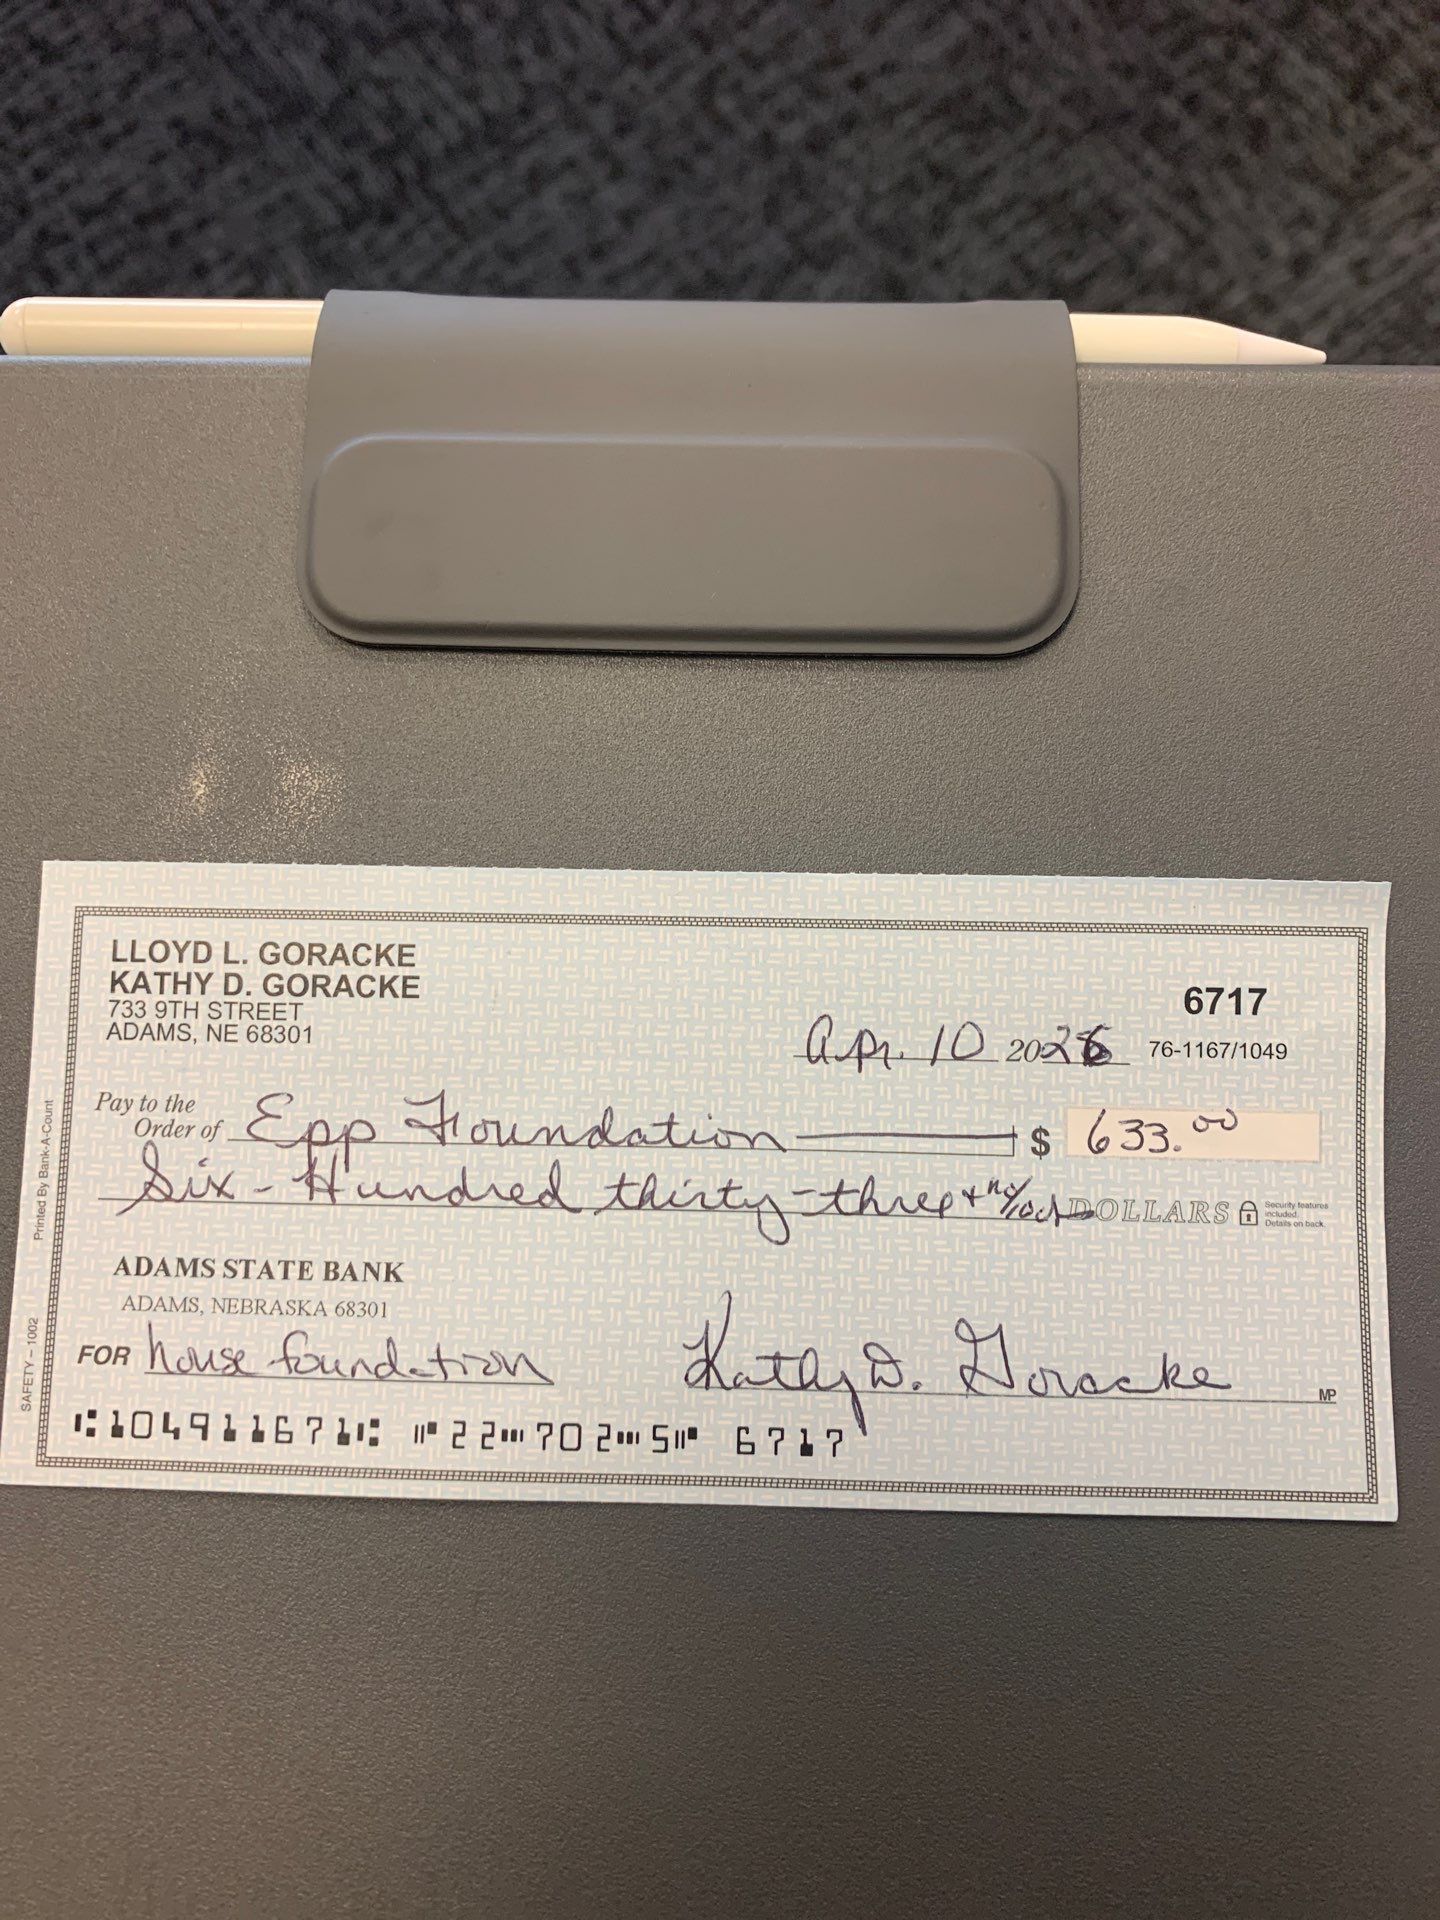 LLOYD L. GORACKE
KATHY D. GORACKE
733 9TH STREET
ADAMS, NE 68301
6717
Apr. 10 2026 76-1167/1049
Pay to the Order of Epp Foundation $ 633.00
Six-Hundred thirty-three + no/100 DOLLARS
Security features included. Details on back.
ADAMS STATE BANK
ADAMS, NEBRASKA 68301
FOR house foundation Kathy D. Goracke MP
⑆104911671⑆ ⑈22⑉702⑉5⑈ 6717
Printed By Bank-A-Count
SAFETY – 1002